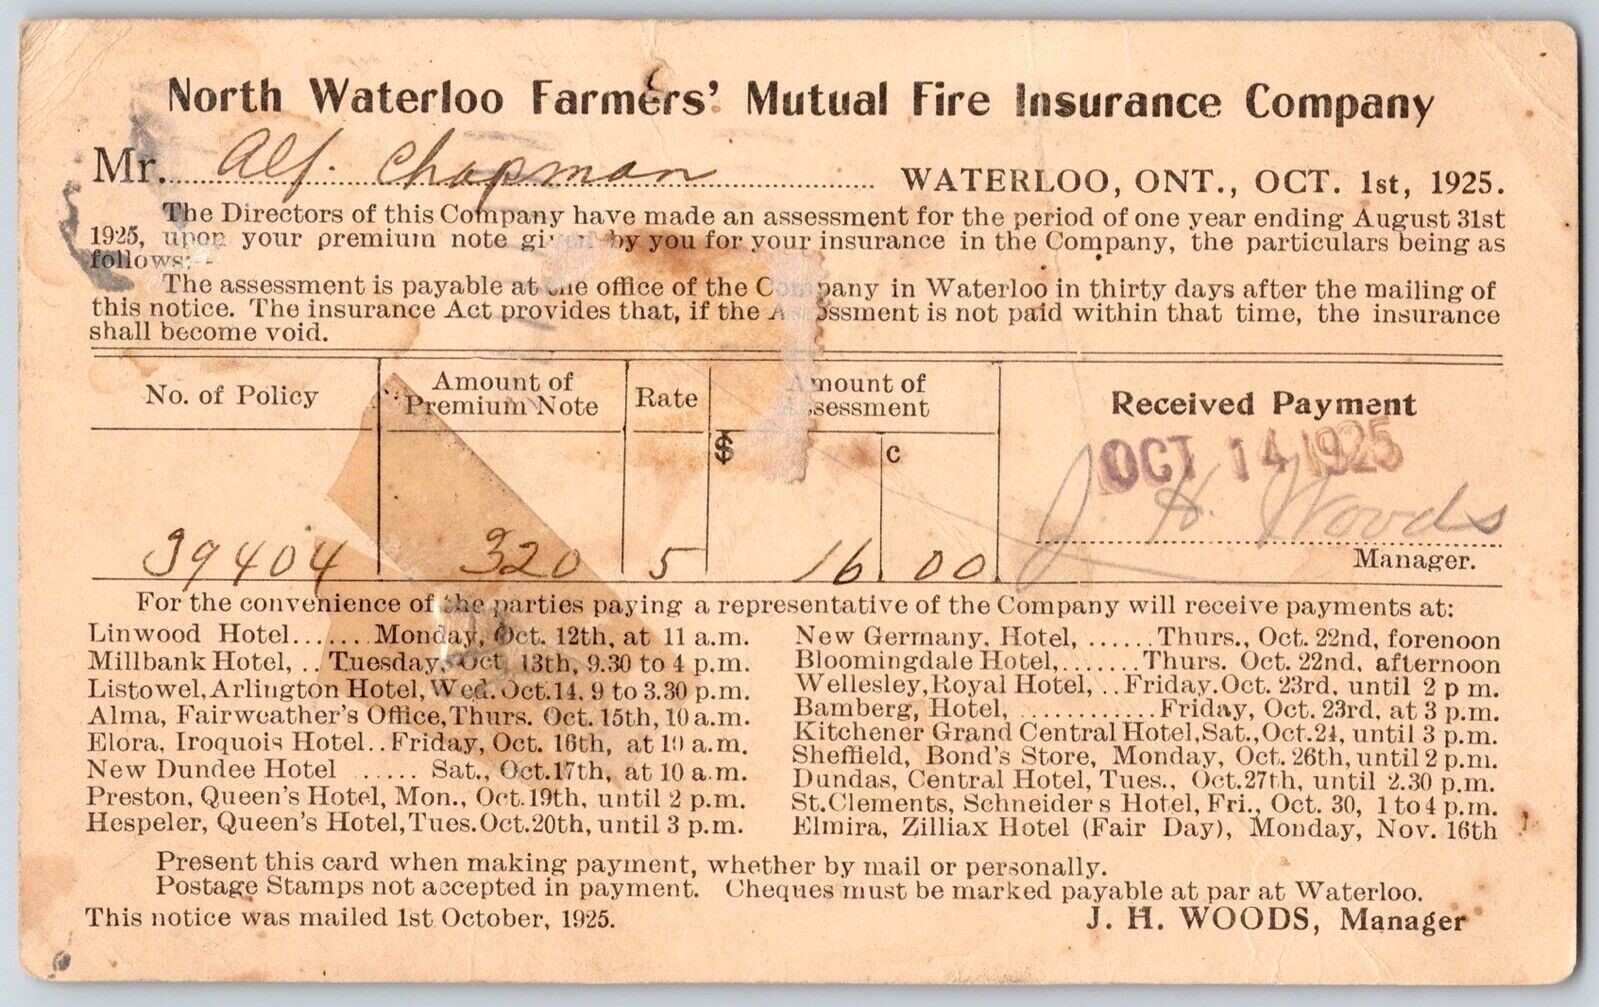 North Waterloo Farmers' Mutual Fire Insurance Company
Mr. Alf. Chapman WATERLOO, ONT., OCT. 1st, 1925.
The Directors of this Company have made an assessment for the period of one year ending August 31st
1925, upon your premium note given by you for your insurance in the Company, the particulars being as
follows:-
The assessment is payable at the office of the Company in Waterloo in thirty days after the mailing of
this notice. The insurance Act provides that, if the Assessment is not paid within that time, the insurance
shall become void.
No. of Policy
Amount of
Premium Note
Rate
Amount of
Assessment
$ c
Received Payment
OCT 14 1925
J. H. Woods
Manager.
39404 320 5 16.00
For the convenience of the parties paying a representative of the Company will receive payments at:
Linwood Hotel.......Monday, Oct. 12th, at 11 a.m.
Millbank Hotel, ..Tuesday, Oct 13th, 9.30 to 4 p.m.
Listowel, Arlington Hotel, Wed. Oct. 14. 9 to 3.30 p.m.
Alma, Fairweather's Office, Thurs. Oct. 15th, 10 a.m.
Elora, Iroquois Hotel..Friday, Oct. 16th, at 10 a.m.
New Dundee Hotel ...... Sat., Oct. 17th, at 10 a.m.
Preston, Queen's Hotel, Mon., Oct. 19th, until 2 p.m.
Hespeler, Queen's Hotel, Tues. Oct. 20th, until 3 p.m.
New Germany, Hotel, ......Thurs., Oct. 22nd, forenoon
Bloomingdale Hotel,.......Thurs. Oct. 22nd, afternoon
Wellesley, Royal Hotel, ..Friday. Oct. 23rd, until 2 p m.
Bamberg, Hotel, ............Friday, Oct. 23rd, at 3 p.m.
Kitchener Grand Central Hotel, Sat., Oct. 24, until 3 p.m.
Sheffield, Bond's Store, Monday, Oct. 26th, until 2 p.m.
Dundas, Central Hotel, Tues., Oct. 27th, until 2.30 p.m.
St. Clements, Schneider s Hotel, Fri., Oct. 30, 1 to 4 p.m.
Elmira, Zilliax Hotel (Fair Day), Monday, Nov. 16th
Present this card when making payment, whether by mail or personally.
Postage Stamps not accepted in payment. Cheques must be marked payable at par at Waterloo.
This notice was mailed 1st October, 1925.
J. H. WOODS, Manager